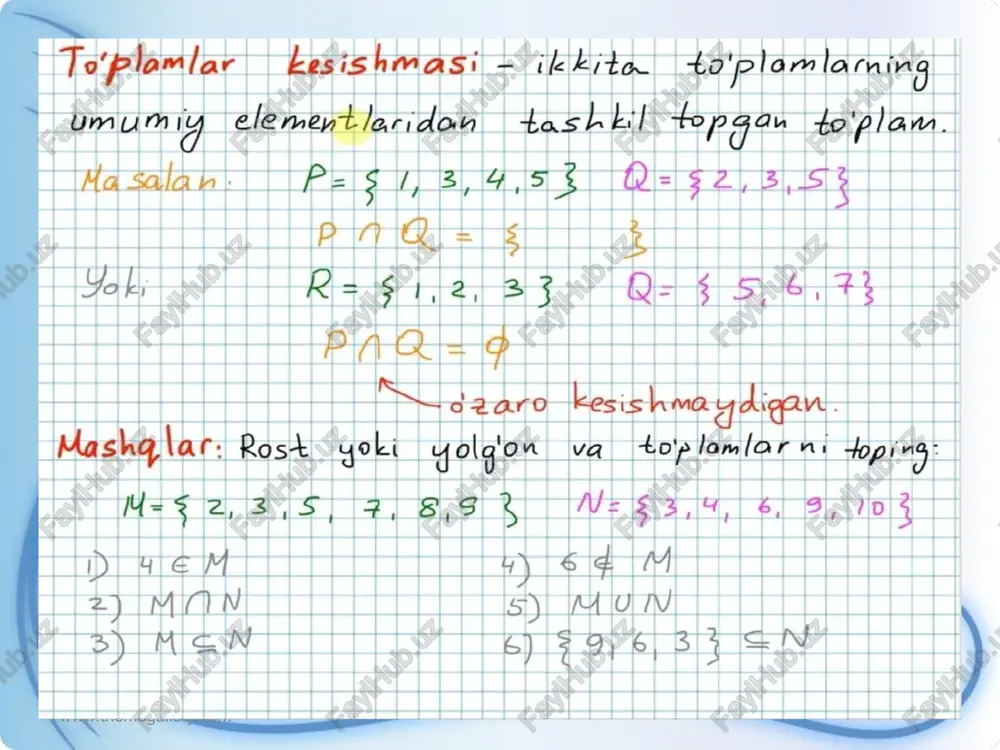 To'plamlar kesishmasi – ikkita to'plamlarning
umumiy elementlaridan tashkil topgan to'plam.
Masalan. P = { 1, 3, 4, 5 } Q = { 2, 3, 5 }
P ∩ Q = { }
Yoki R = { 1, 2, 3 } Q = { 5, 6, 7 }
P ∩ Q = ϕ
o'zaro kesishmaydigan.
Mashqlar: Rost yoki yolg'on va to'plamlarni toping:
M = { 2, 3, 5, 7, 8, 9 } N = { 3, 4, 6, 9, 10 }
1) 4 ∈ M 4) 6 ∉ M
2) M ∩ N 5) M ∪ N
3) M ⊆ N 6) { 9, 6, 3 } ⊆ N
FaylHub.uz